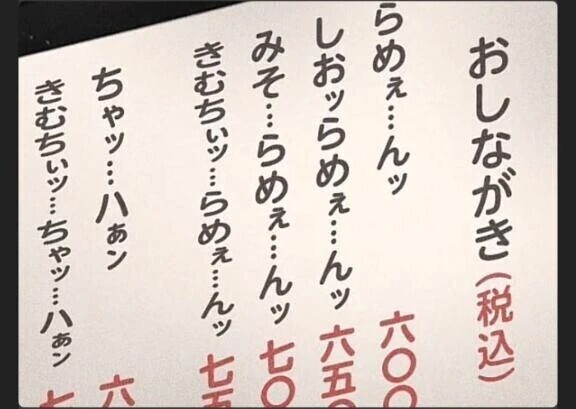 おしながき(税込)
らめぇ…んッ 六〇〇
しおッらめぇ…んッ 六五〇
みそ…らめぇ…んッ 七〇
きむちぃッ…らめぇ…んッ 七五
ちャッ…ハぁン 六
きむちぃッ…ちャッ…ハぁン 七